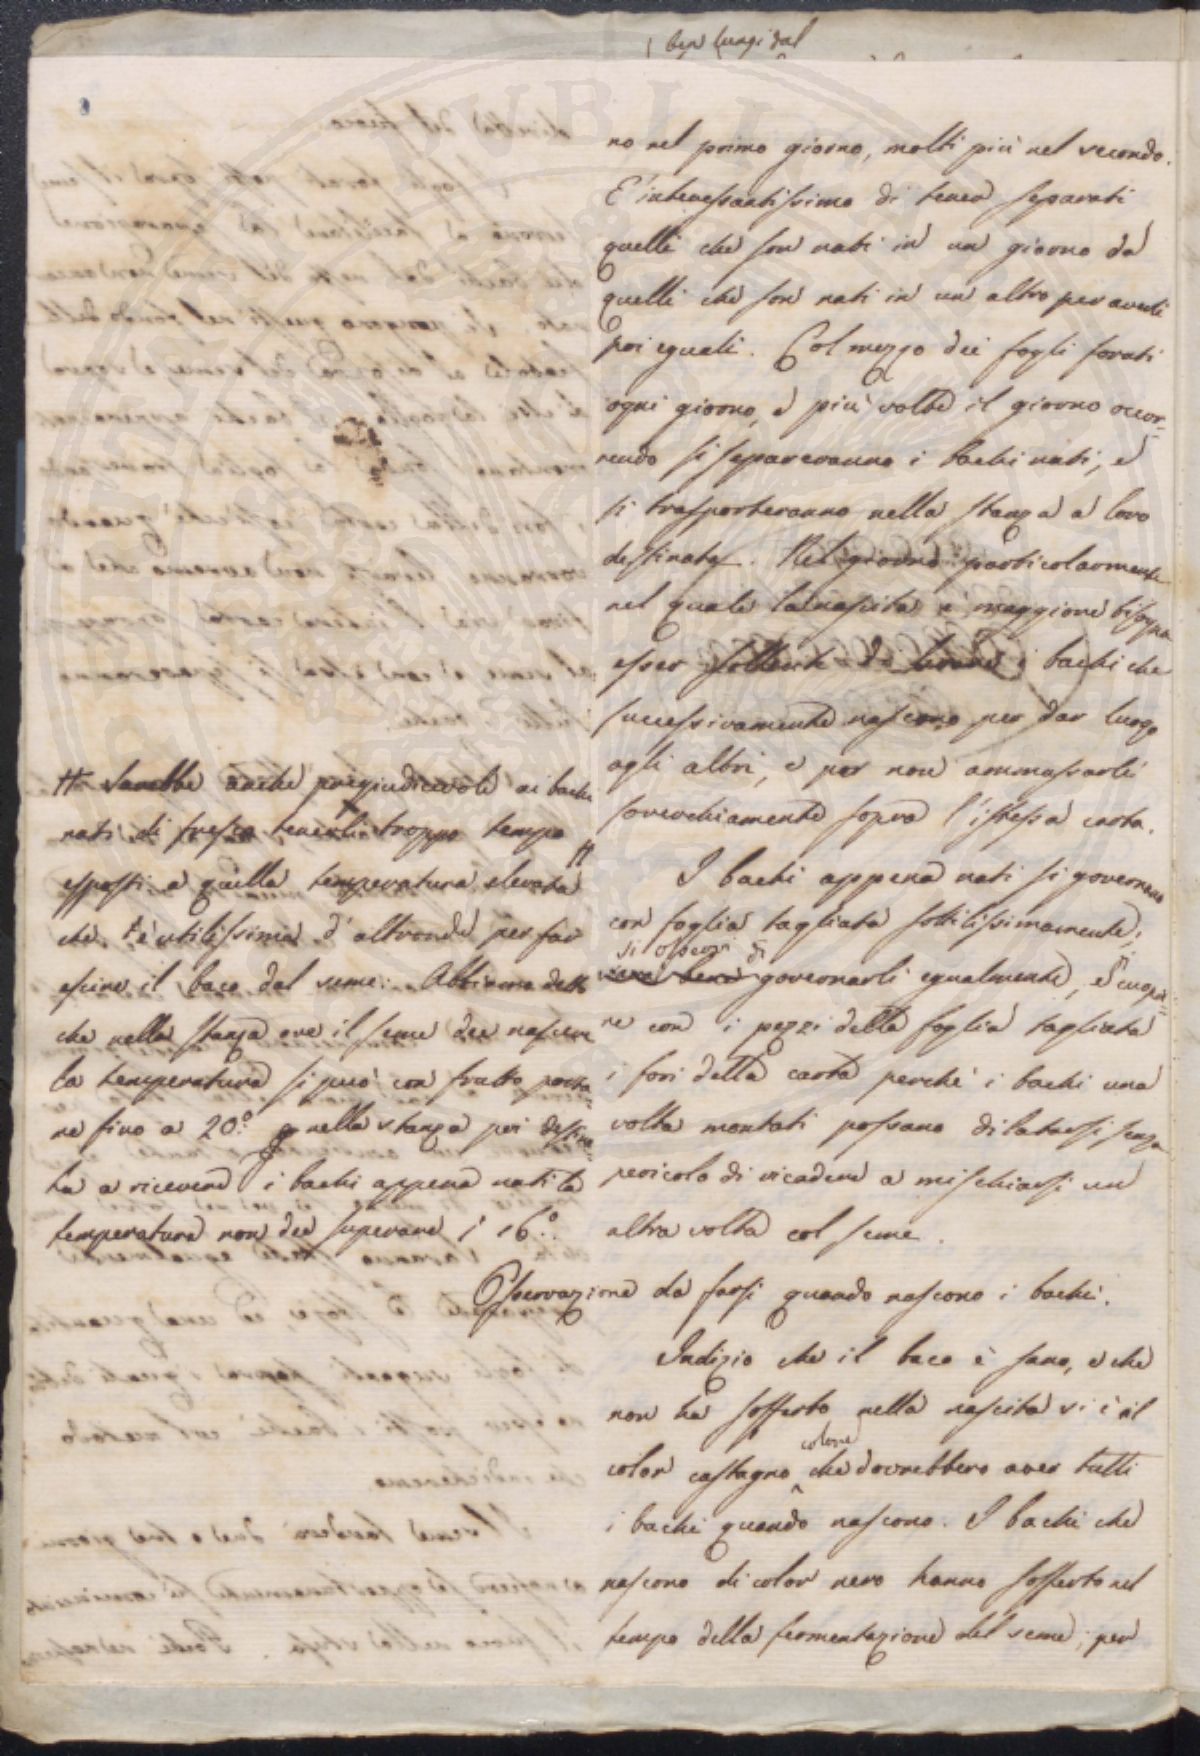 ben lungi dal
no nel primo giorno, molti più nel secondo.
E' interessantissimo di tener separati
quelli che son nati in un giorno da
quelli che son nati in un altro per averli
poi eguali. Col mezzo dei fogli forati
ogni giorno, e più volte il giorno occor=
rendo si separeranno i bachi nati, e
si trasporteranno nella stanza a loro
destinata. Nel giorno particolarmente
nel quale la nascita è maggiore bisogna
esser solleciti di levare i bachi che
successivamente nascono per dar luogo
agli altri, e per non ammassarli
soverchiamente sopra l'istessa carta.
I bachi appena nati si governano
con foglia tagliata sottilissimamente;
si osservi di
governarli egualmente, e cuopri=
re con i pezzi della foglia tagliata
i fori della carta perché i bachi una
volta montati possano dilatarsi senza
pericolo di ricadere a mischiarsi un
altra volta col seme.
Osservazione da farsi quando nascono i bachi.
Indizio che il baco è sano, e che
non ha sofferto nella nascita si è il
colore
color castagno che dovrebbero aver tutti
i bachi quando nascono. I bachi che
nascono di color nero hanno sofferto nel
tempo della fermentazione del seme; per
# Sarebbe anche pregiudicevole ai bachi
nati di fresco tenerli troppo tempo
esposti a quella temperatura elevata
che è utilissima d'altronde per far
escire il baco dal seme: Abbiamo detto
che nella stanza ove il seme dee nascere
la temperatura si può con frutto porta=
re fino a 20.° nella stanza poi destina=
ta a ricevere i bachi appena nati la
temperatura non dee superare i 16.°